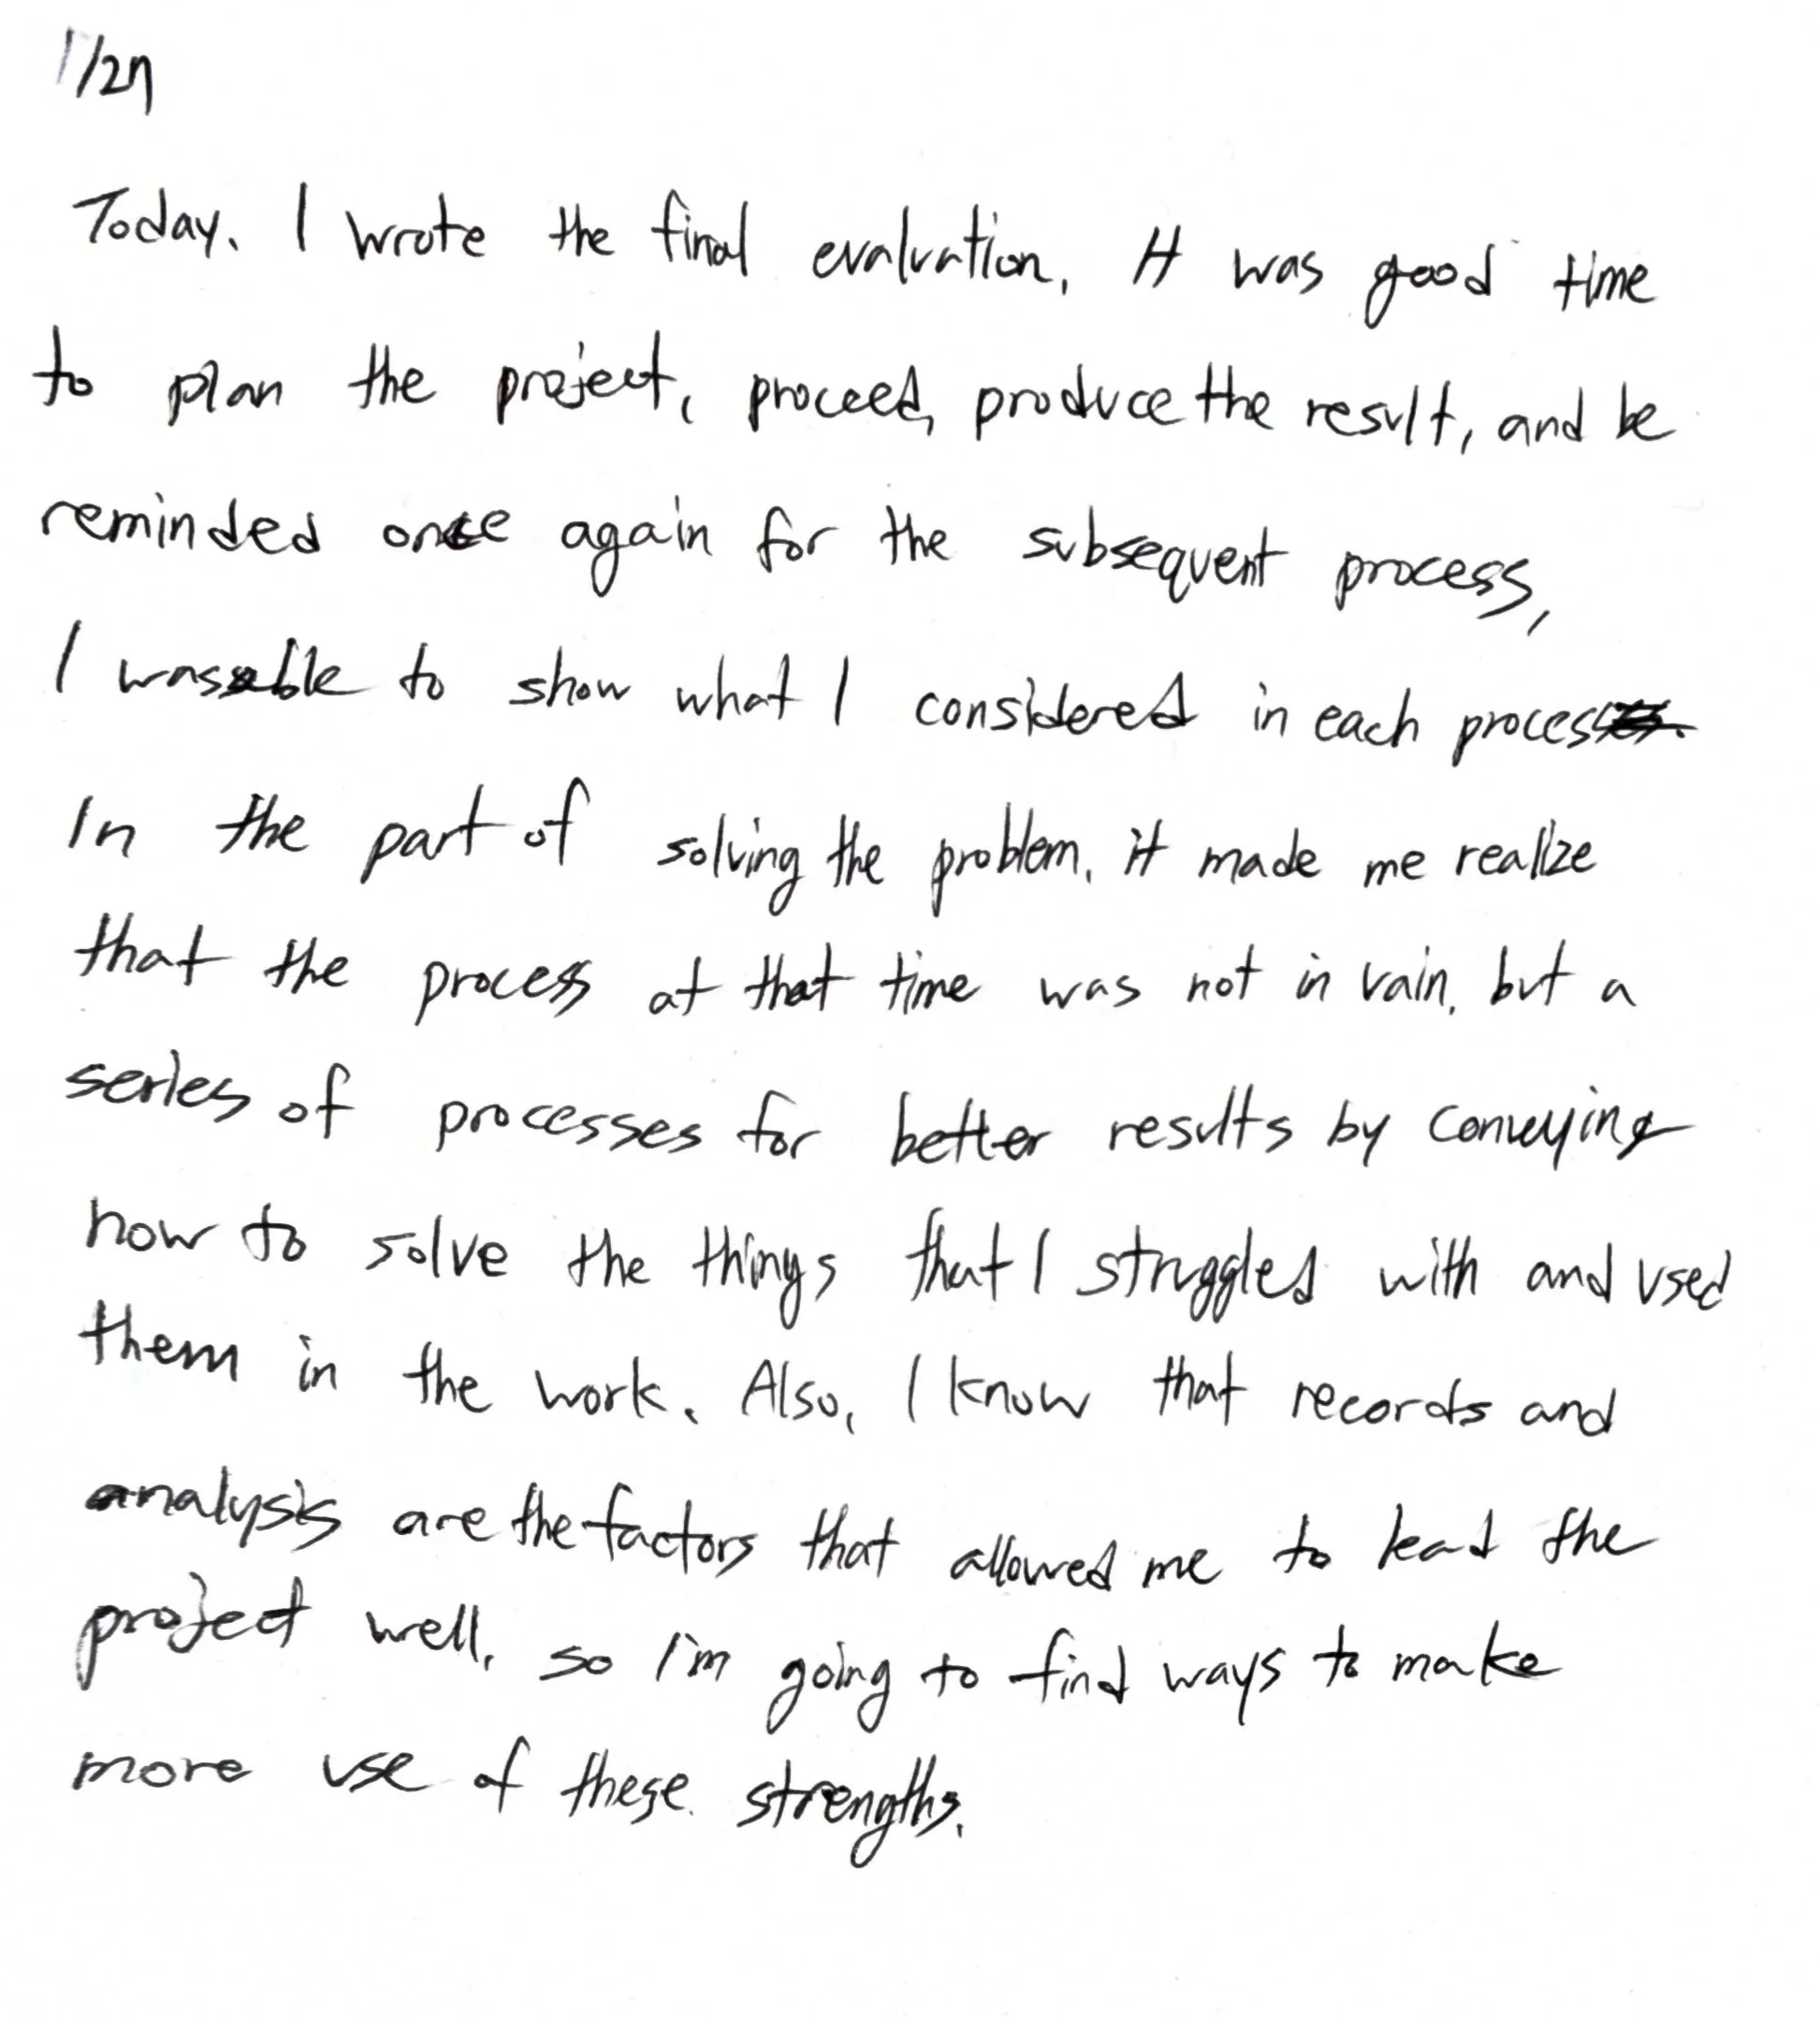 1/27
Today, I wrote the final evaluation. It was good time
to plan the project, proceed, produce the result, and be
reminded once again for the subsequent process,
I was able to show what I considered in each process.
In the part of solving the problem, it made me realize
that the process at that time was not in vain, but a
series of processes for better results by conveying
how to solve the things that I struggled with and used
them in the work. Also, I know that records and
analysis are the factors that allowed me to lead the
project well, so I'm going to find ways to make
more use of these strengths.